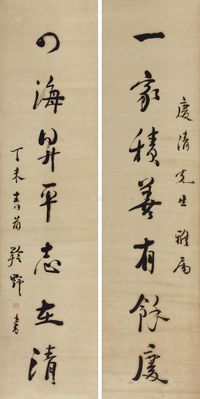 慶清先生雅屬
一家積善有餘慶
四海昇平志在清
丁未春首 書